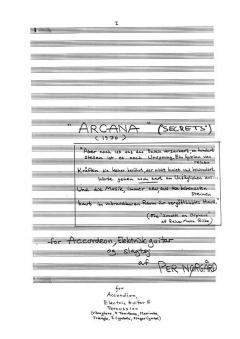 I
"ARCANA" (SECRETS)
(1970)
"Aber noch ist uns das Dasein verzaubert; an hundert
Stellen ist es noch Ursprung. Ein Spielen von
reinen
Kräften, die keiner berührt, der nicht kniet und bewundert.
Worte gehen noch zart am Unsäglichen aus...
Und die Musik, immer neu, aus den bebendsten
Steinen
baut im unbrauchbaren Raum ihr vergöttlichtes Haus."
of Rainer Maria Rilke)
for Accordeon, Elektrisk guitar
og slagtøj
af PER NØRGÅRD
for
Accordion,
Electric Guitar &
Percussion